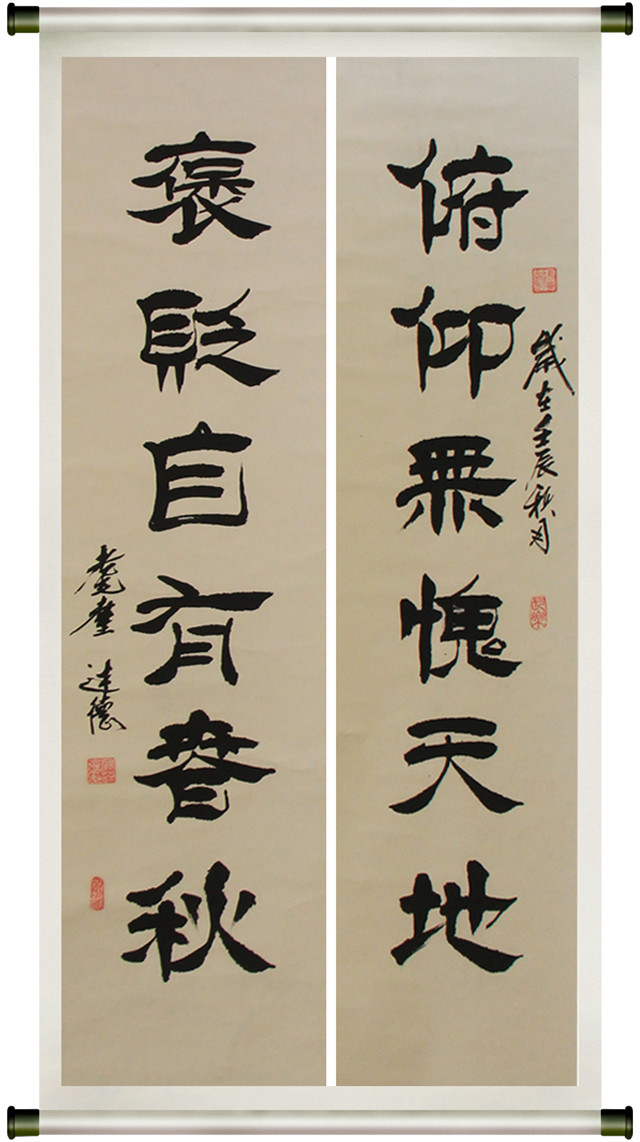 俯仰無愧天地
歲在壬辰秋月
褒貶自有春秋
達德